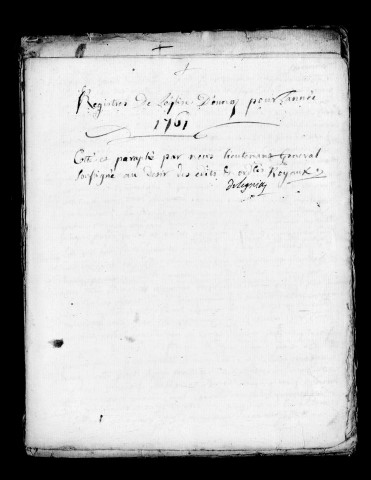 +
Registres De L'église D'ourcq pour L'année
1761
Cotté et paraphé par nous lieutenant general
soussigné au desir des edits & ordces Royaux